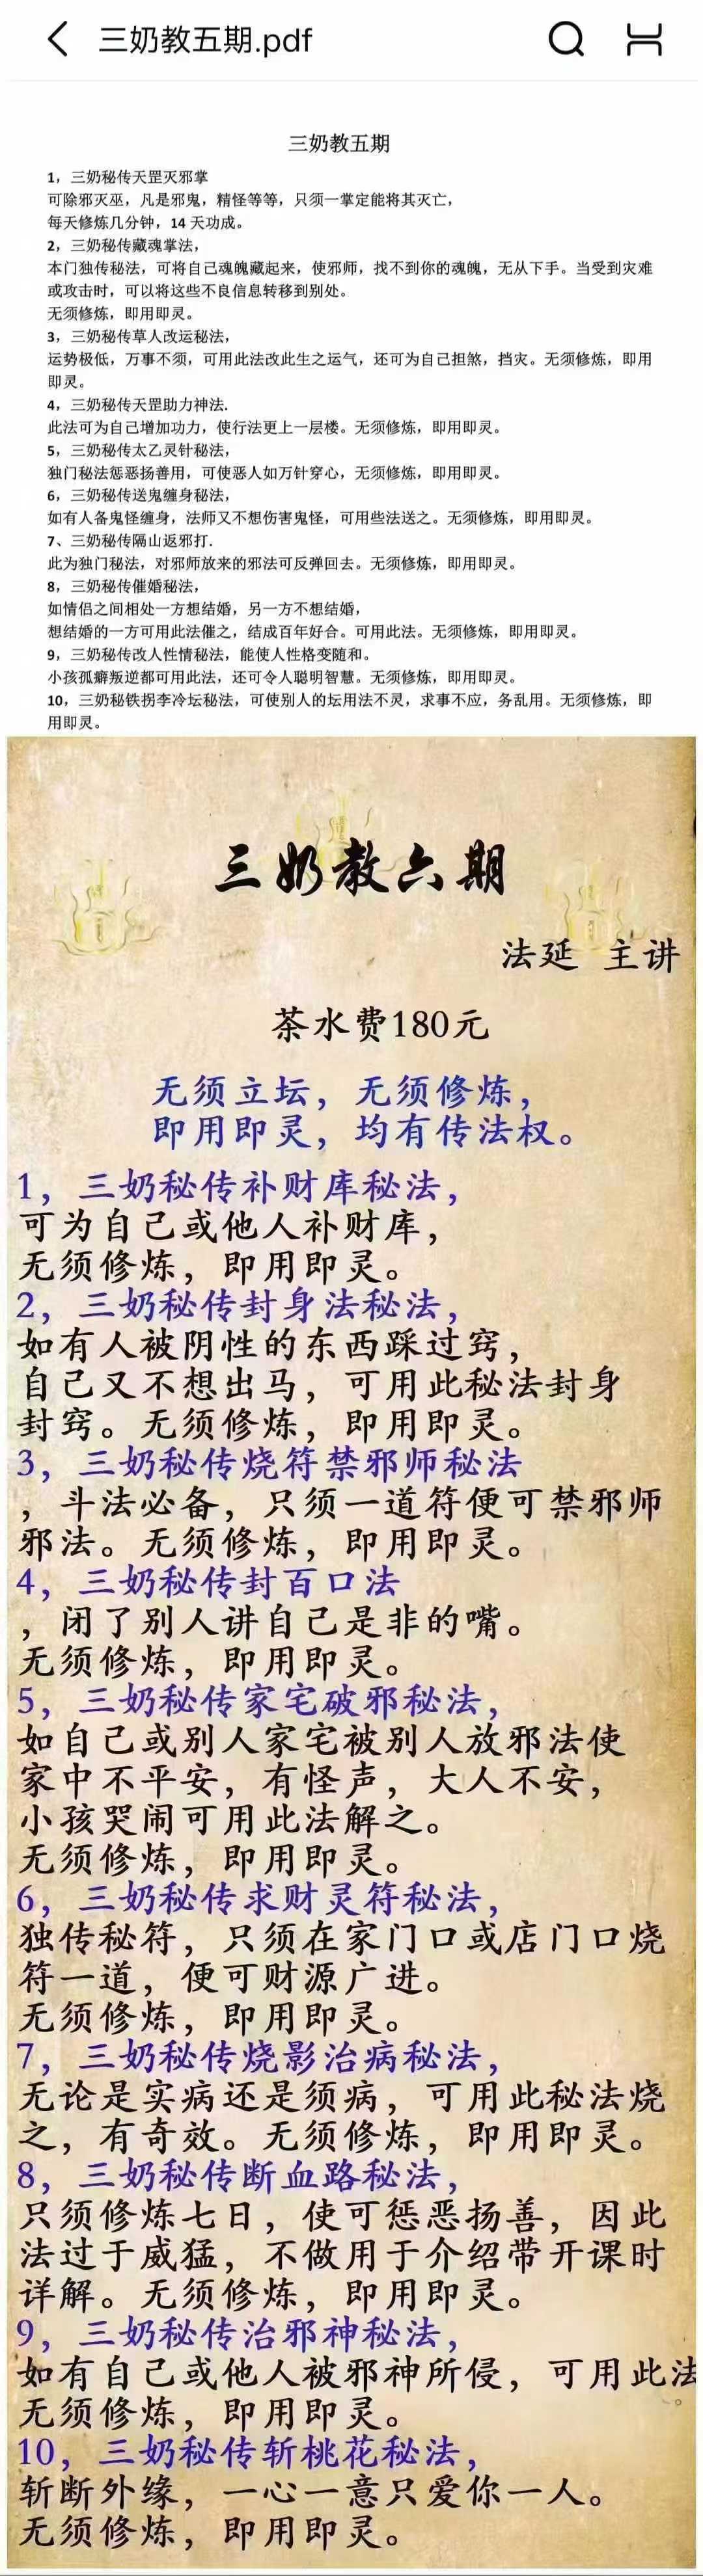 三奶教五期.pdf
三奶教五期
1，三奶秘传天罡灭邪掌
可除邪灭巫，凡是邪鬼，精怪等等，只须一掌定能将其灭亡，
每天修炼几分钟，14 天功成。
2，三奶秘传藏魂掌法，
本门独传秘法，可将自己魂魄藏起来，使邪师，找不到你的魂魄，无从下手。当受到灾难
或攻击时，可以将这些不良信息转移到别处。
无须修炼，即用即灵。
3，三奶秘传草人改运秘法，
运势极低，万事不须，可用此法改此生之运气，还可为自己担煞，挡灾。无须修炼，即用
即灵。
4，三奶秘传天罡助力神法.
此法可为自己增加功力，使行法更上一层楼。无须修炼，即用即灵。
5，三奶秘传太乙灵针秘法，
独门秘法惩恶扬善用，可使恶人如万针穿心，无须修炼，即用即灵。
6，三奶秘传送鬼缠身秘法，
如有人备鬼怪缠身，法师又不想伤害鬼怪，可用些法送之。无须修炼，即用即灵。
7、三奶秘传隔山返邪打.
此为独门秘法，对邪师放来的邪法可反弹回去。无须修炼，即用即灵。
8，三奶秘传催婚秘法，
如情侣之间相处一方想结婚，另一方不想结婚，
想结婚的一方可用此法催之，结成百年好合。可用此法。无须修炼，即用即灵。
9，三奶秘传改人性情秘法，能使人性格变随和。
小孩孤癖叛逆都可用此法，还可令人聪明智慧。无须修炼，即用即灵。
10，三奶秘铁拐李冷坛秘法，可使别人的坛用法不灵，求事不应，务乱用。无须修炼，即
用即灵。
三奶教六期
法延 主讲
茶水费180元
无须立坛，无须修炼，
即用即灵，均有传法权。
1，三奶秘传补财库秘法，
可为自己或他人补财库，
无须修炼，即用即灵。
2，三奶秘传封身法秘法，
如有人被阴性的东西踩过窍，
自己又不想出马，可用此秘法封身
封窍。无须修炼，即用即灵。
3，三奶秘传烧符禁邪师秘法
，斗法必备，只须一道符便可禁邪师
邪法。无须修炼，即用即灵。
4，三奶秘传封百口法
，闭了别人讲自己是非的嘴。
无须修炼，即用即灵。
5，三奶秘传家宅破邪秘法，
如自己或别人家宅被别人放邪法使
家中不平安，有怪声，大人不安，
小孩哭闹可用此法解之。
无须修炼，即用即灵。
6，三奶秘传求财灵符秘法，
独传秘符，只须在家门口或店门口烧
符一道，便可财源广进。
无须修炼，即用即灵。
7，三奶秘传烧影治病秘法，
无论是实病还是须病，可用此秘法烧
之，有奇效。无须修炼，即用即灵。
8，三奶秘传断血路秘法，
只须修炼七日，使可惩恶扬善，因此
法过于威猛，不做用于介绍带开课时
详解。无须修炼，即用即灵。
9，三奶秘传治邪神秘法，
如有自己或他人被邪神所侵，可用此法
。
无须修炼，即用即灵。
10，三奶秘传斩桃花秘法，
斩断外缘，一心一意只爱你一人。
无须修炼，即用即灵。